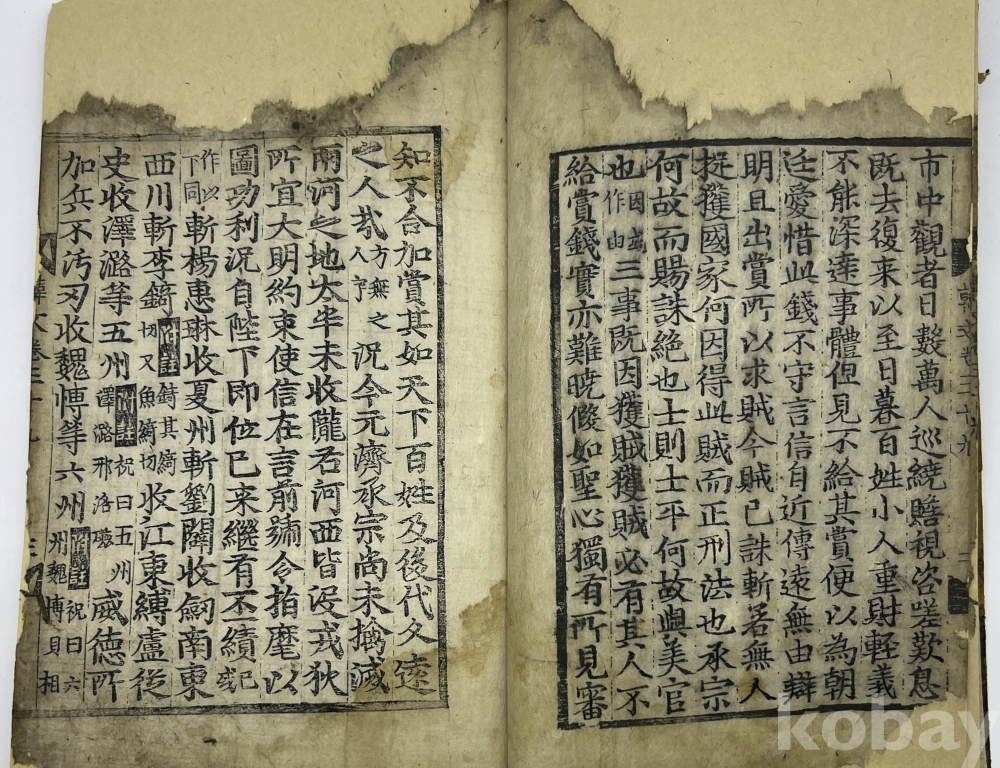 韓文卷三十九
市中觀者日數萬人巡繞瞻視咨嗟歎息
既去復来以至日暮百姓小人重財軽義
不能深達事體但見不給其賞便以為朝
廷愛惜此錢不守言信自近傳遠無由辯
明且出賞所以求賊今賊已誅斬若無人
捉獲國家何因得此賊而正刑法也承宗
何故而賜誅絶也士則士平何故與美官
也因或作由三事既因獲賊獲賊必有其人不
給賞錢實亦難暁儻如聖心獨有所見審
知不合加賞其如天下百姓及後代久遠
之人哉方無之人字況今元濟承宗尚未擒滅
兩河之地太半未收隴右河西皆没戎狄
所宜大明約束使信在言前號令指麾以
圖功利況自陛下即位已来繼有丕績已或
作以下同斬楊惠琳收夏州斬劉闢收劒南東
西川斬李錡補註錡其綺切又魚綺切收江東縛盧從
史收澤潞等五州補註祝曰五州澤潞邢洛磁威德所
加兵不汚刃收魏愽等六州補註祝曰六州魏愽貝相
韓文卷三十九
kobay